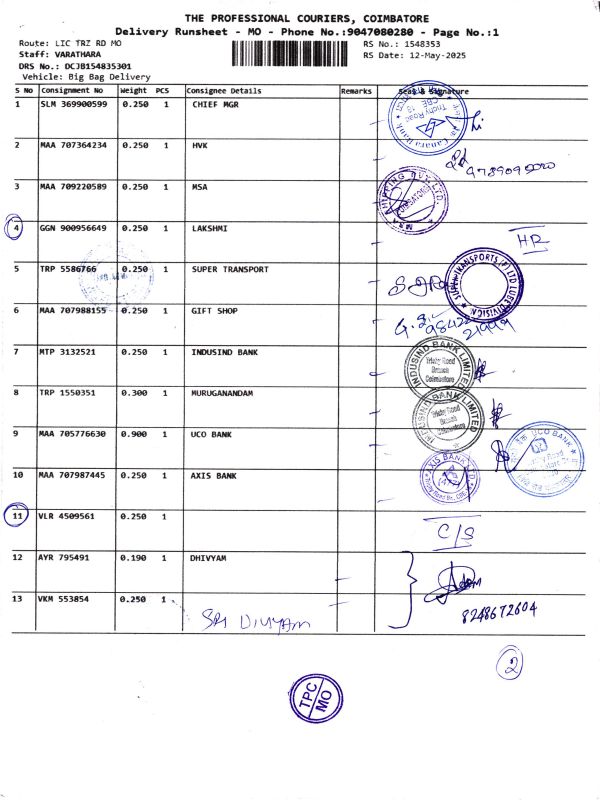 THE PROFESSIONAL COURIERS, COIMBATORE
Delivery Runsheet - MO - Phone No.:9047080280 - Page No.:1
Route: LIC TRZ RD MO
RS No.: 1548353
Staff: VARATHARA
RS Date: 12-May-2025
DRS No.: DCJB154835301
Vehicle: Big Bag Delivery
S No Consignment No Weight PCS Consignee Details Remarks Seal & Signature
1 SLM 369900599 0.250 1 CHIEF MGR
Canara Bank Trichy Road CBE
2 MAA 707364234 0.250 1 HVK
9789095020
3 MAA 709220589 0.250 1 MSA
SHIPPING PVT. LTD.
4 GGN 900956649 0.250 1 LAKSHMI
HR
5 TRP 5586766 0.250 1 SUPER TRANSPORT
SUPER TRANSPORTS (P) LTD LUBE DIVISION
6 MAA 707988155 0.250 1 GIFT SHOP
7 MTP 3132521 0.250 1 INDUSIND BANK
INDUSIND BANK LIMITED Trichy Road Branch Coimbatore
8 TRP 1550351 0.300 1 MURUGANANDAM
INDUSIND BANK LIMITED Trichy Road Branch Coimbatore
9 MAA 705776630 0.900 1 UCO BANK
UCO BANK
10 MAA 707987445 0.250 1 AXIS BANK
AXIS BANK LTD.
11 VLR 4509561 0.250 1
C/S
12 AYR 795491 0.190 1 DHIVYAM
13 VKM 553854 0.250 1
SRI DIVYAM
8248672604
2
TPC MO